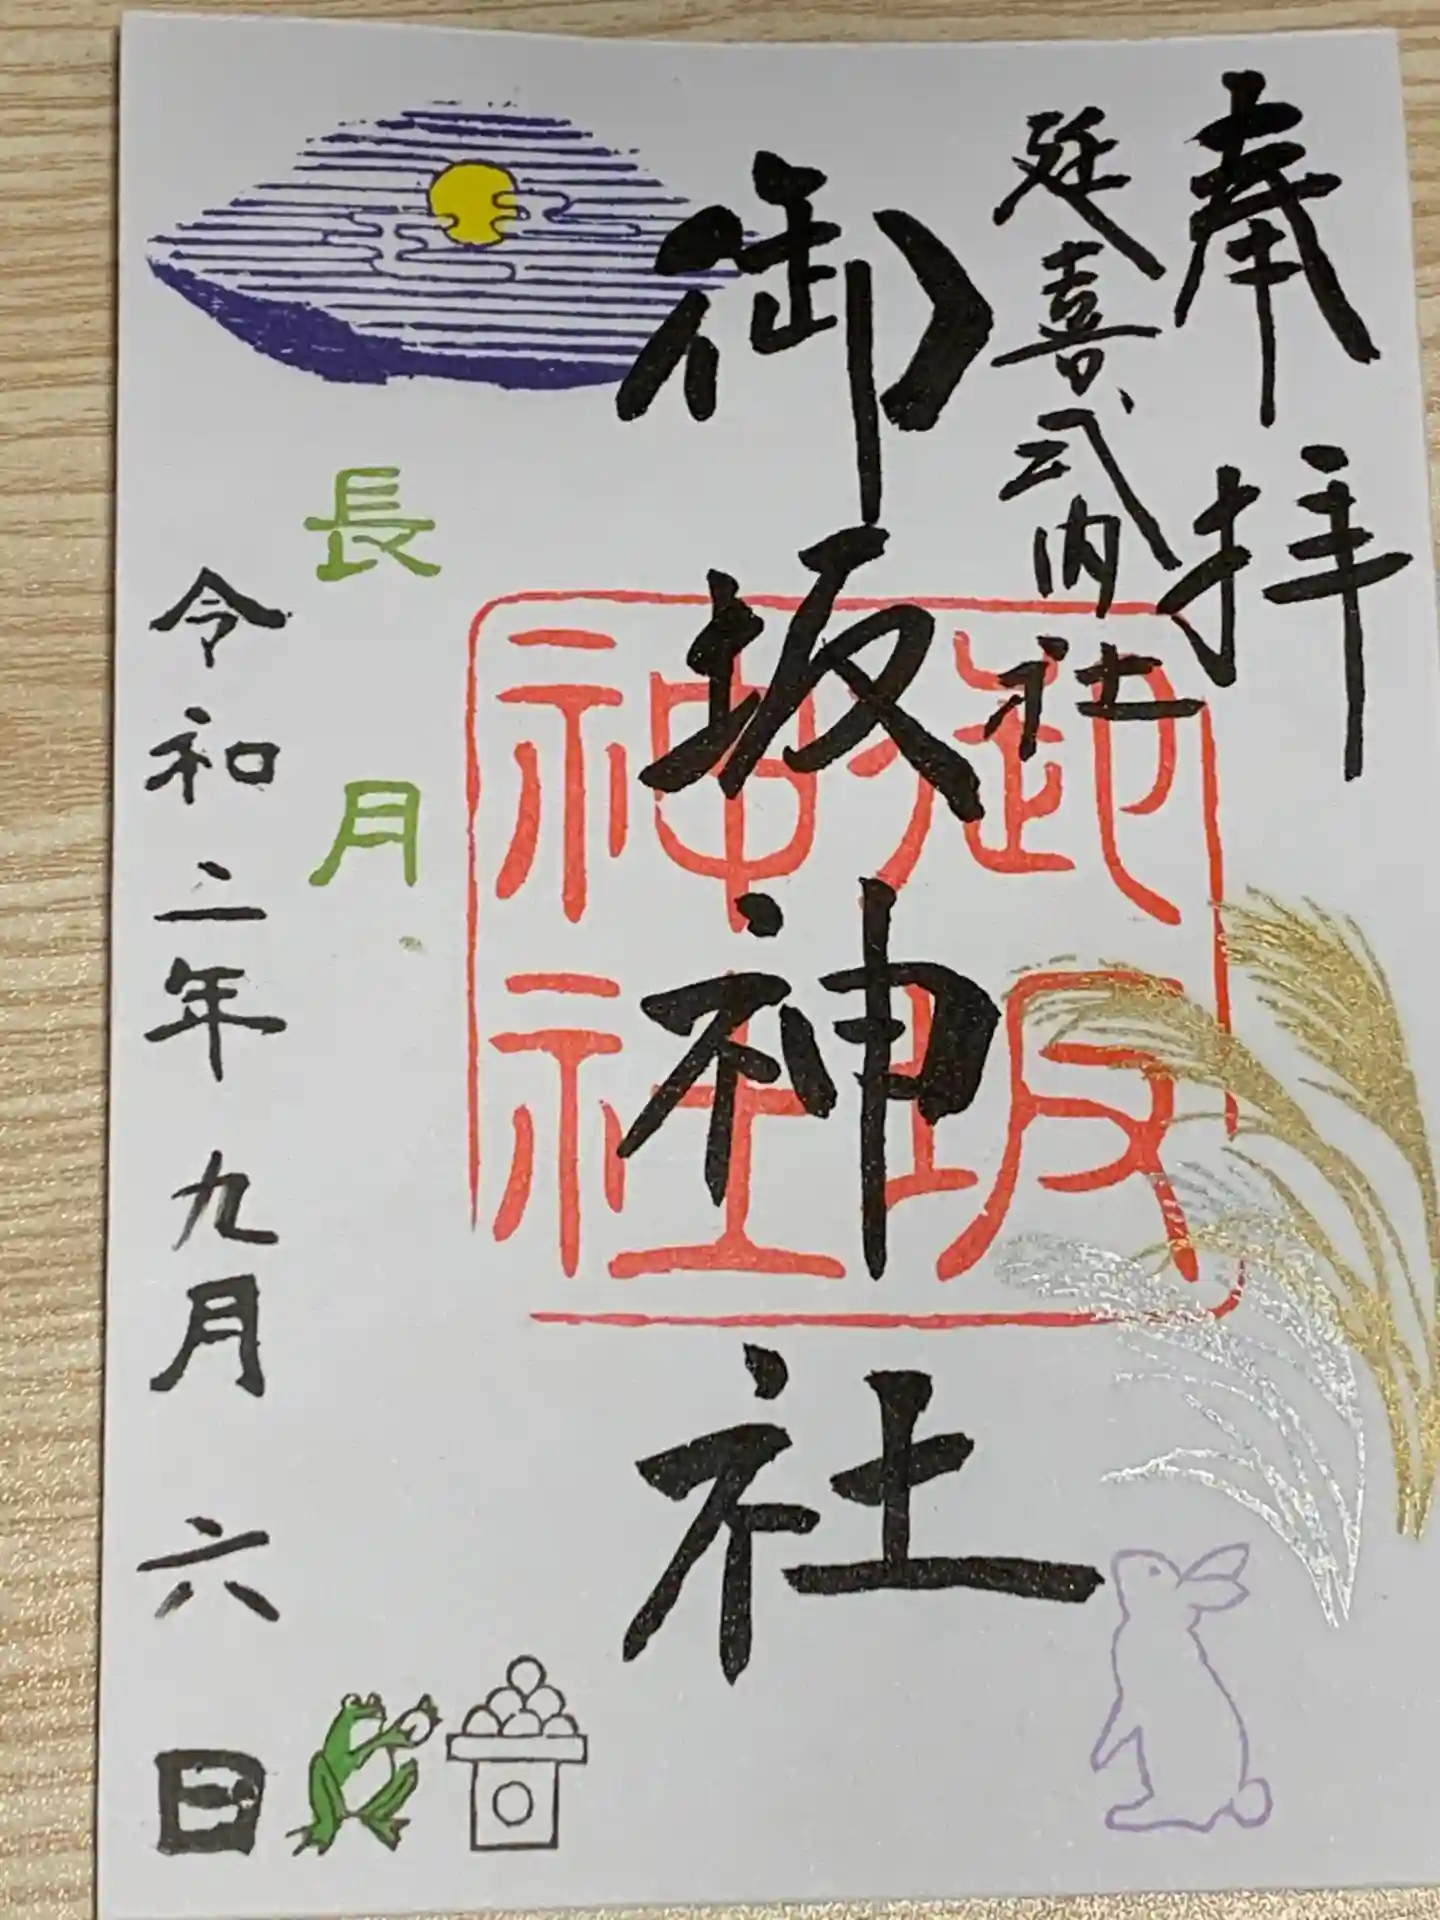 奉拝
延喜式内社
御坂神社
御坂神社
長月
令和二年九月六日